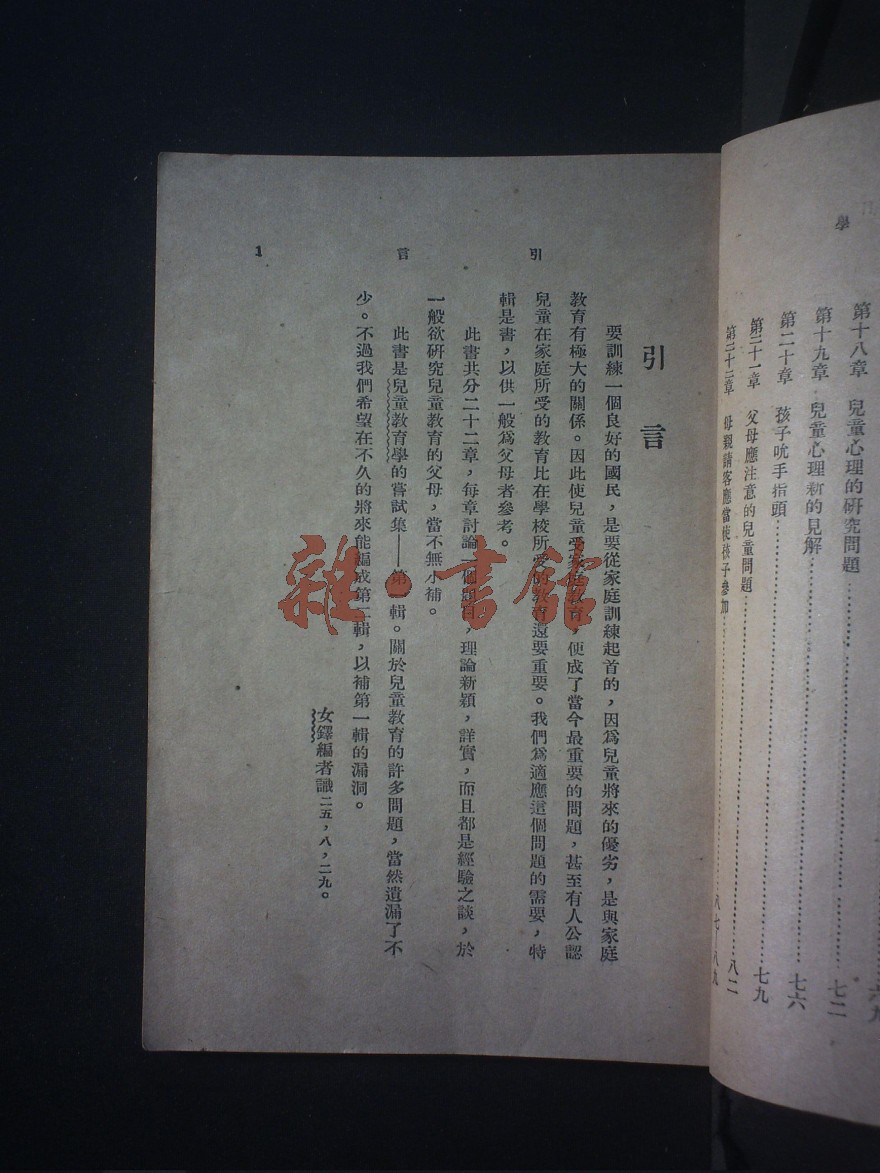 學
第十八章 兒童心理的研究問題……六九
第十九章 兒童心理新的見解……七二
第二十章 孩子吮手指頭……七六
第二十一章 父母應注意的兒童問題……七九
第二十二章 母親請客應當使孩子參加……八二
八七—八九
引言
引言 1
要訓練一個良好的國民，是要從家庭訓練起首的，因爲兒童將來的優劣，是與家庭
教育有極大的關係。因此使兒童受家庭教育，便成了當今最重要的問題，甚至有人公認
兒童在家庭所受的教育比在學校所受的教育還要重要。我們爲適應這個問題的需要，特
輯是書，以供一般爲父母者參考。
此書共分二十二章，每章討論一個題目，理論新穎，詳實，而且都是經驗之談，於
一般欲研究兒童教育的父母，當不無小補。
此書是兒童教育學的嘗試集——第一輯。關於兒童教育的許多問題，當然遺漏了不
少。不過我們希望在不久的將來能編成第二輯，以補第一輯的漏洞。
女鐸編者識二五，八，二九。
雜·書館